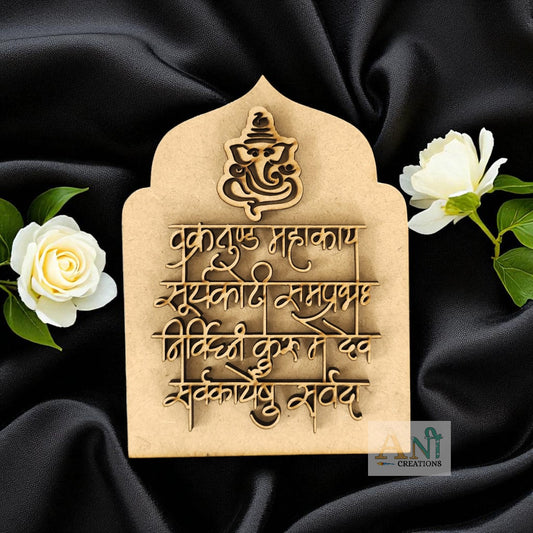 वक्रतुण्ड महाकाय
सूर्यकोटी समप्रभः
निर्विघ्नं कुरु मे देव
सर्वकार्येषु सर्वदा
ANI
CREATIONS